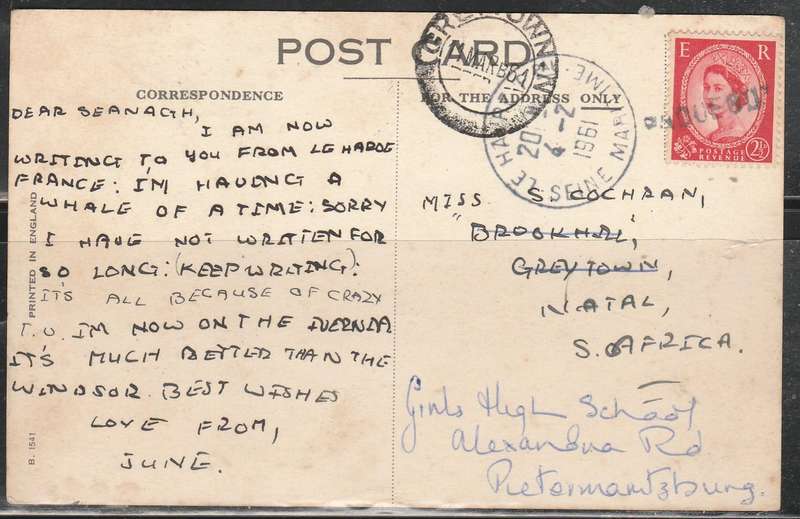 POST CARD
CORRESPONDENCE
FOR THE ADDRESS ONLY
DEAR SEANAGH,
I AM NOW
WRITING TO YOU FROM LE HARDE
FRANCE: I'M HAVING A
WHALE OF A TIME: SORRY
I HAVE NOT WRITTEN FOR
SO LONG: (KEEP WRITING):
IT'S ALL BECAUSE OF CRAZY
T.U. I'M NOW ON THE IVERNIA
IT'S MUCH BETTER THAN THE
WINDSOR. BEST WISHES
LOVE FROM,
JUNE.
PRINTED IN ENGLAND
B. 1541
GREYTOWN
LE HA
20
4-2
1961
SEINE MARITIME
E R
POSTAGE
REVENUE
2½
PAQUEBOT
MISS S. COCHRAN,
"BROOKHIL",
GREYTOWN,
NATAL,
S. AFRICA.
Girls High School
Alexandra Rd
Pietermaritzburg.